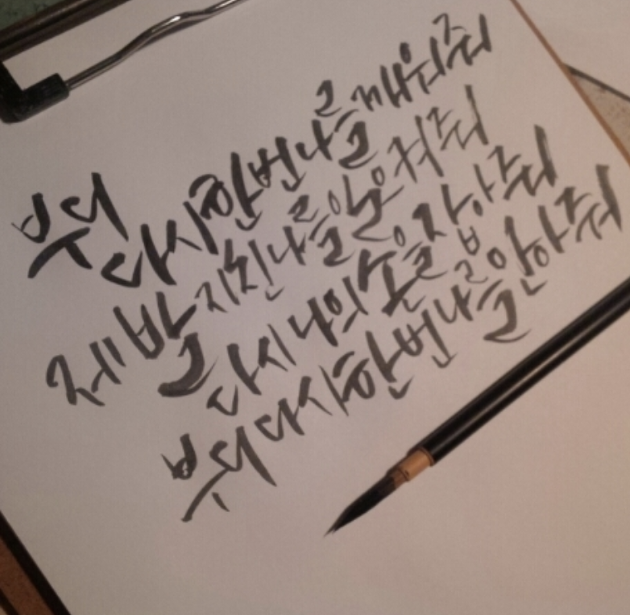 부디
다시 한번 나를 깨워줘
제발 지친 나를 일으켜줘
다시 나의 손을 잡아줘
부디 다시 한번 나를 안아줘